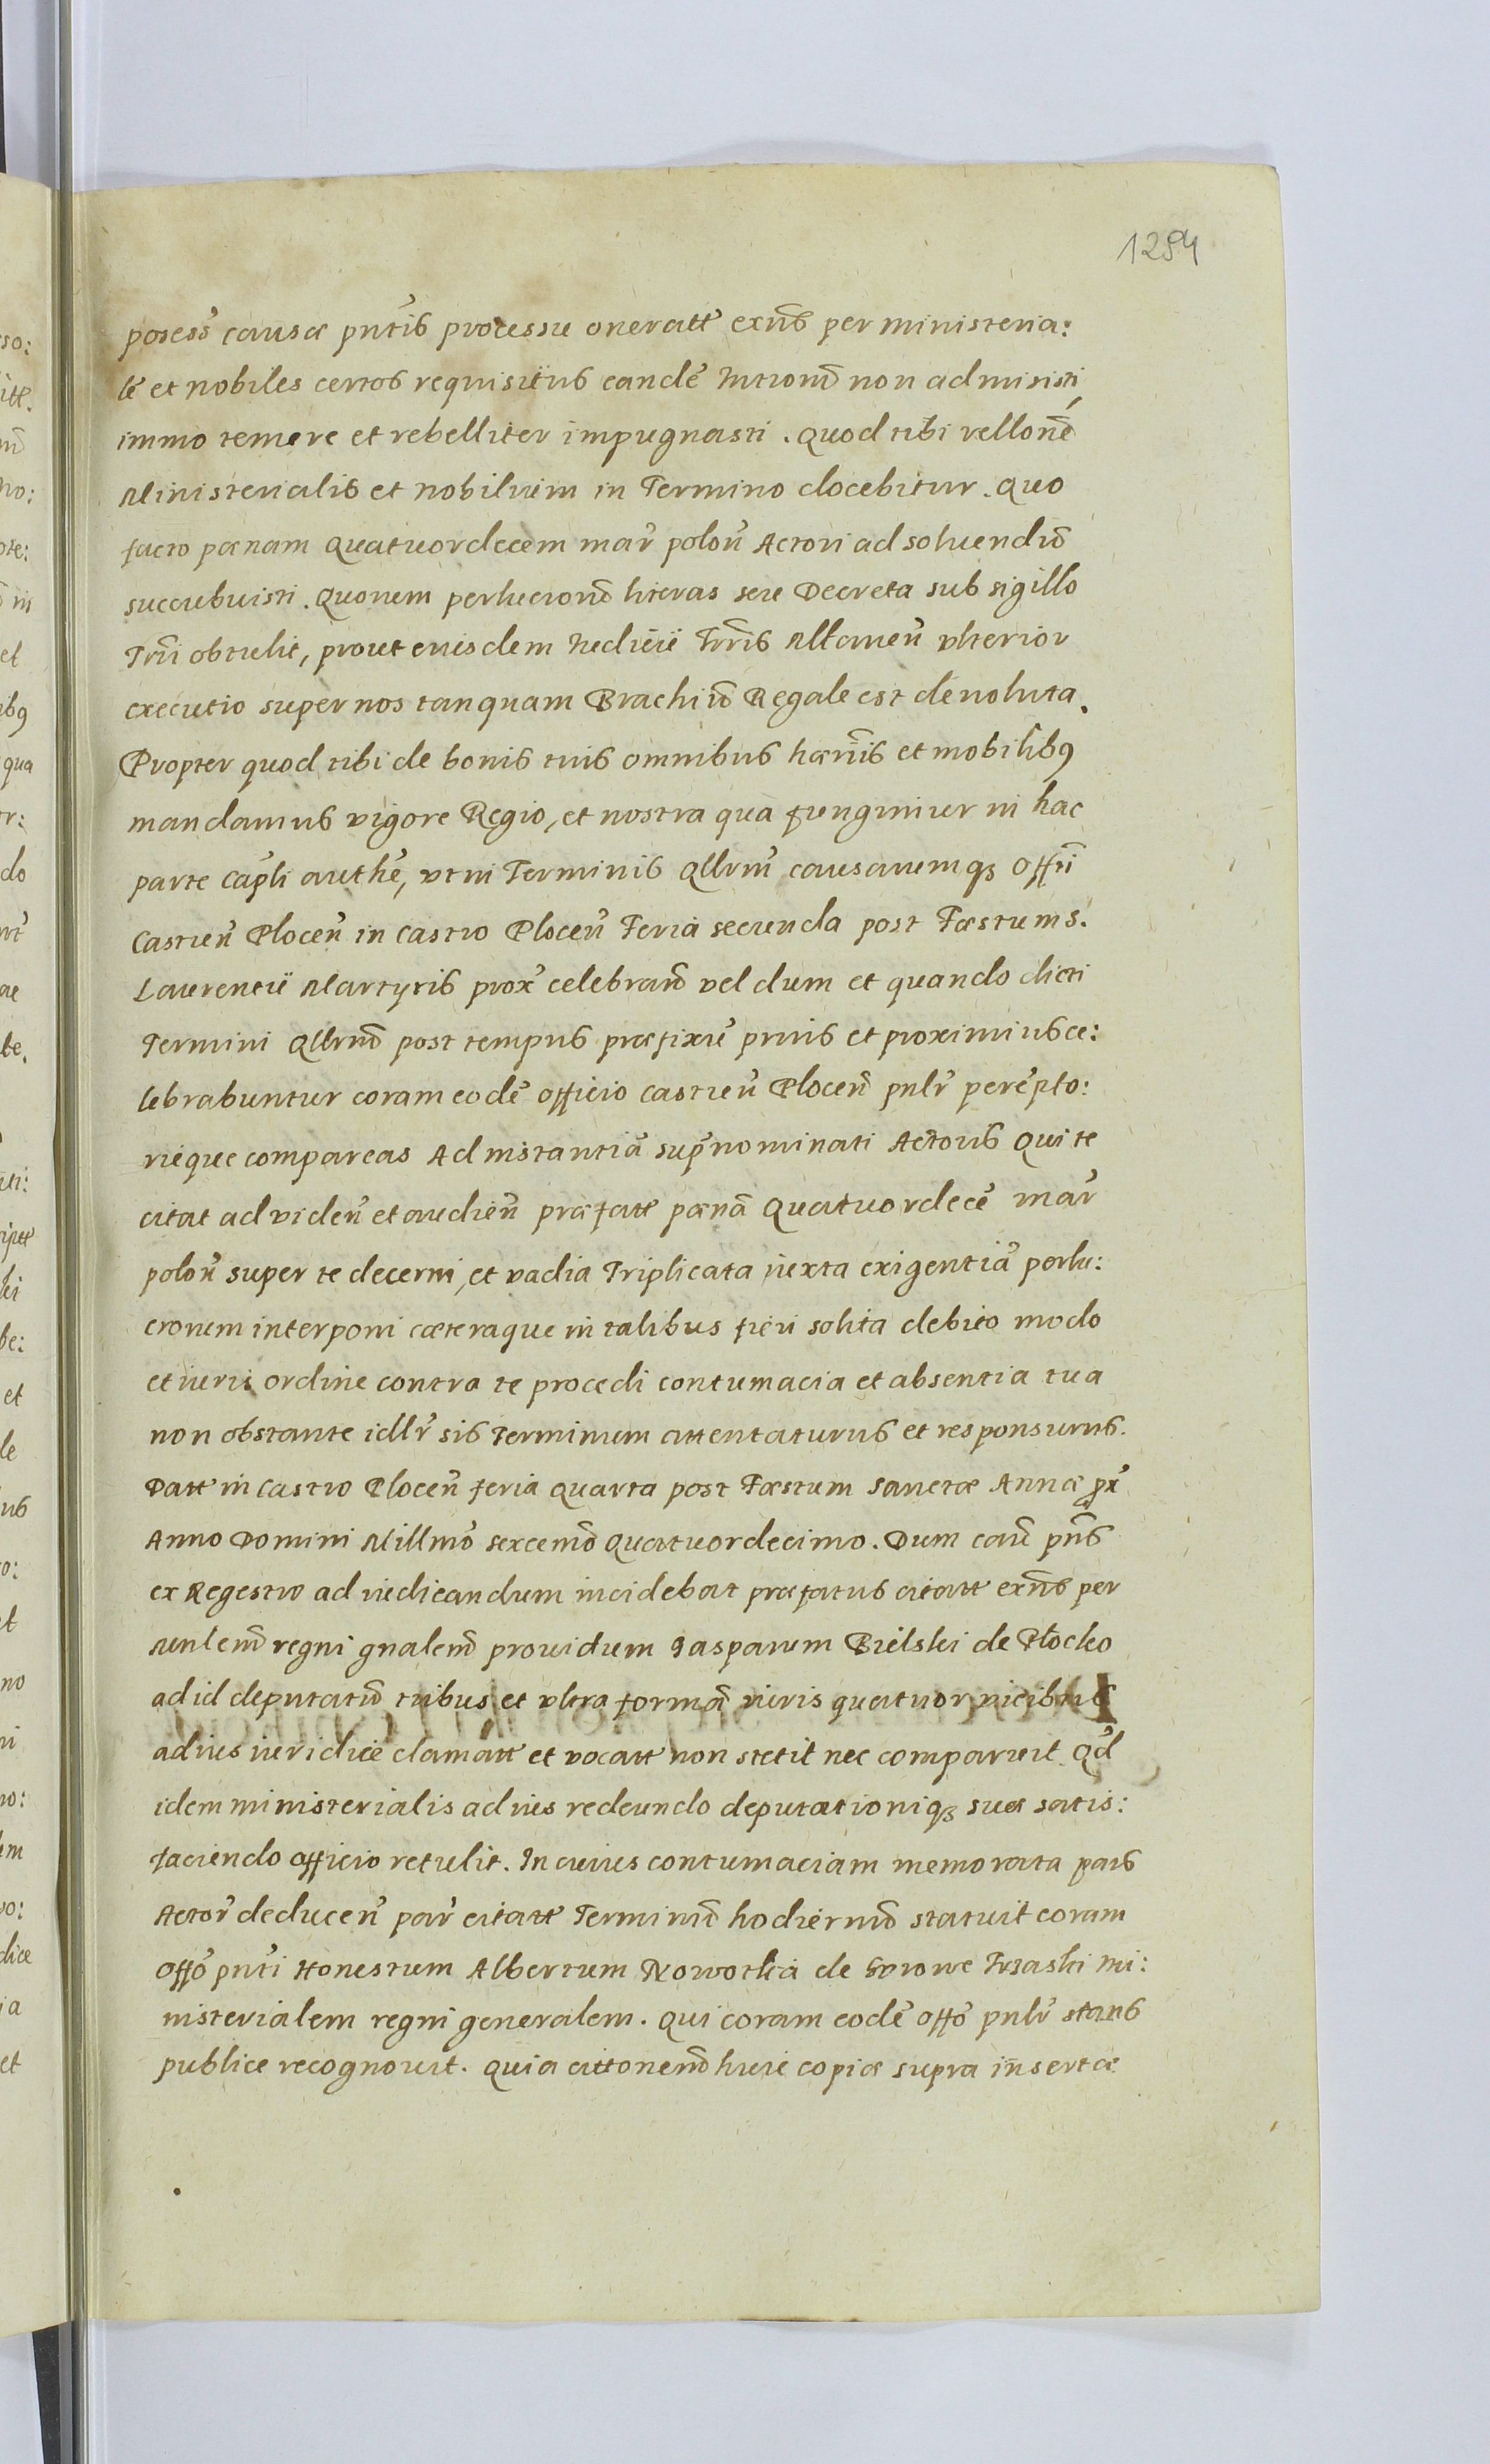 1294
posess causæ pntis processu oneratt exns per ministeria:
lē et nobiles certos requisitus eandē Intromō non admisisti,
immo temere et rebelliter impugnasti. Quod tibi rellonē
Ministerialis et nobilium in Termino docebitur. Quo
facto pœnam Quatuordecem mar polon Actori ad soluendū
succubuisti. Quorum perlucrorū literas seu Decreta sub sigillo
Trrī obtulit, prout eiusdem Iudicii Trris Attamen vlterior
executio super nos tanquam Brachiū Regale est deuoluta.
Propter quod tibi de bonis tuis omnibus hærīis et mobilibq
mandamus vigore Regio, et nostra qua fungimur in hac
parte capli authē, vt in Terminis Qllrum causarumq Offī
Castreñ Ploceñ in Castro Ploceñ Feria secunda post Fæstum S.
Laurentii Martyris prox celebrañ vel dum et quando dicti
Termini Qllrum post tempus præfixū prius et proximius ce:
lebrabuntur coram eodē officio castreñ Ploceñ pnlr perēpto:
rieque compareas Ad instantiā supnominati Actoris Qui te
citat ad videñ et audieñ præfatt pœnā Quatuordecē mar
poloñ super te decerni, et vadia Triplicata iuxta exigentiā perlu:
crorum interponi cæteraque in talibus fieri solita debito modo
et iuris ordine contra te procedi contumacia et absentia tua
non obstante idlr sis Terminum attentaturus et responsurus.
Datt in Castro Ploceñ feria quarta post Fæstum Sanctæ Annæ px
Anno Domini Millmō sexcemō Quatuordecimo. Dum caū pns
ex Regestro ad iudicandum incidebat præfatus citatt exns per
mnlem regni gnalem prouidum Gasparum Bielski de Plocko
ad id deputatū tribus et vltra formā iuris quatuor vicibus
ad ius iuridice clamatt et vocatt non stetit nec comparuit Qd
idem ministerialis ad ius redeundo deputationiq suæ satis:
faciendo officio retulit. In cuius contumaciam memorata pars
Actor deduceñ par citatt Terminū hodiernū statuit coram
offō pnti Honestum Albertum Nowotka de Trzaski mi:
nisterialem regni generalem. Qui coram eodē offō pnlr stans
publice recognouit. Quia cittonem huic copiæ supra insertæ